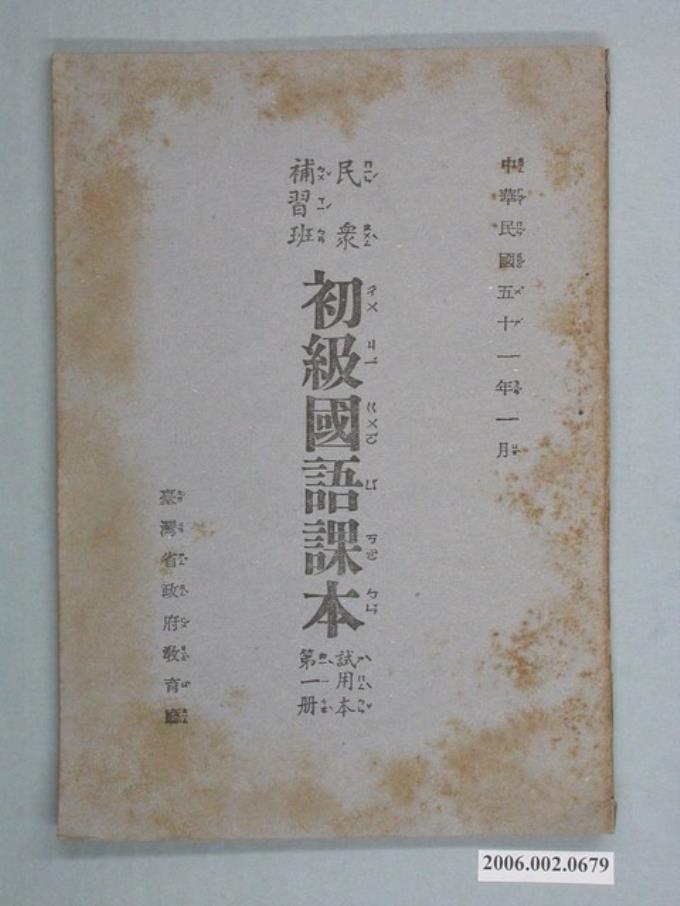 中華民國五十一年一月
民眾
補習班
初級國語課本
試用本
第一册
臺灣省政府教育廳
2006.002.0679